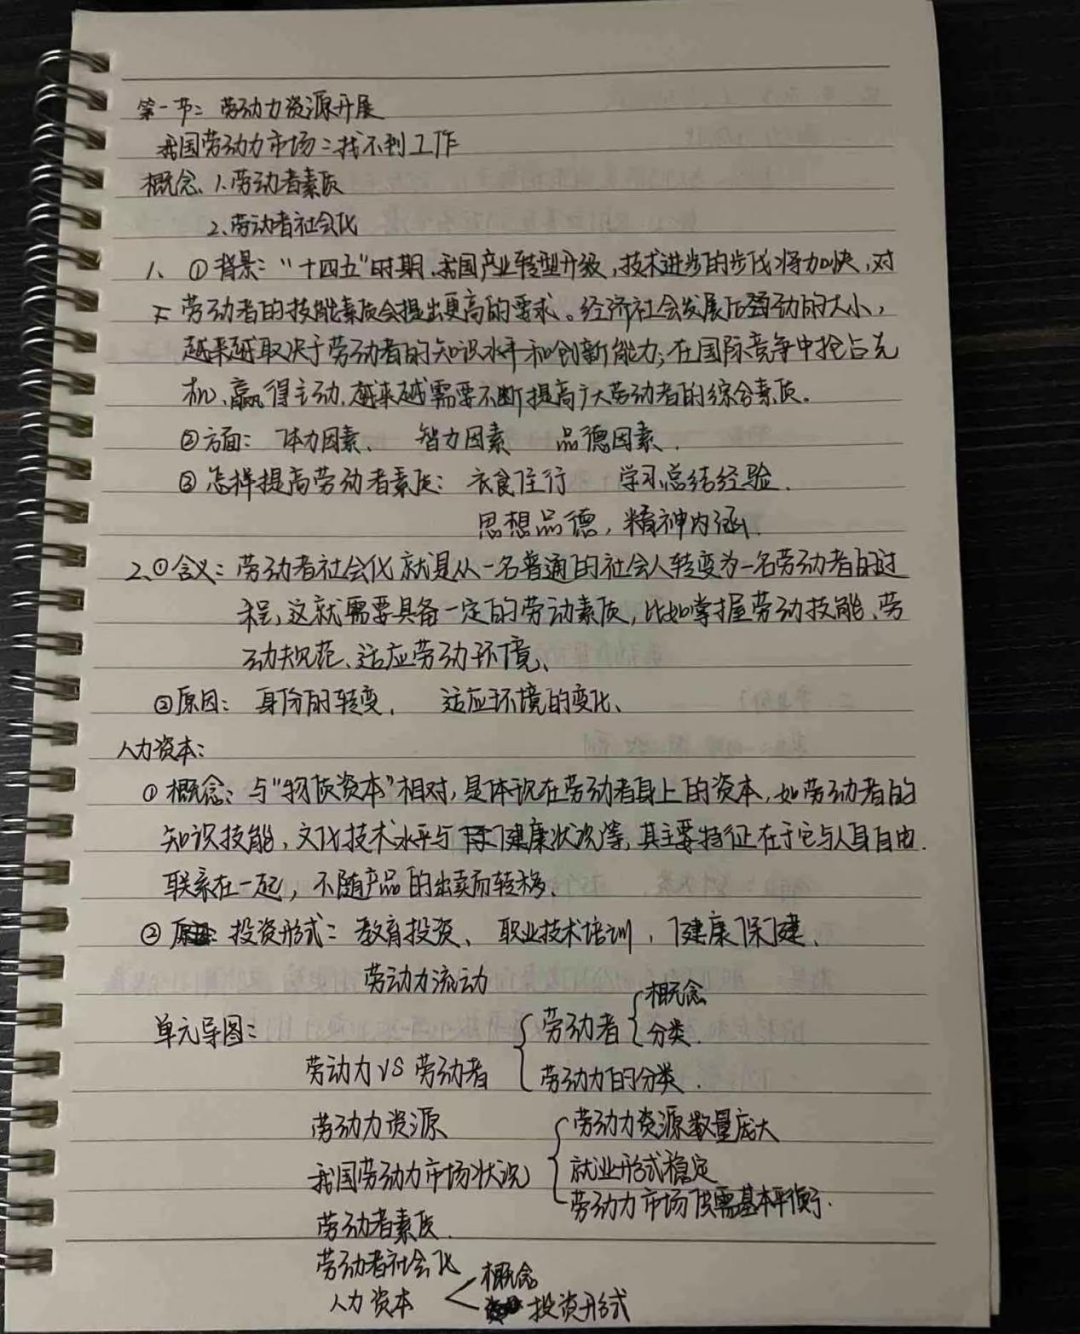 第一节：劳动力资源开展
我国劳动力市场：找不到工作
概念 1.劳动者素质
2.劳动者社会化
1、①背景：“十四五”时期，我国产业转型升级，技术进步的步伐将加快，对
劳动者的技能素质会提出更高的要求。经济社会发展后劲动的大小，
越来越取决于劳动者的知识水平和创新能力；在国际竞争中抢占先
机、赢得主动，越来越需要不断提高广大劳动者的综合素质。
②方面：体力因素、 智力因素 品德因素．
③怎样提高劳动者素质：衣食住行 学习总结经验．
思想品德，精神内涵．
2、①含义：劳动者社会化就是从一名普通的社会人转变为一名劳动者的过
程，这就需要具备一定的劳动素质，比如掌握劳动技能、劳
动规范、适应劳动环境、
②原因：身份的转变． 适应环境的变化、
人力资本：
①概念：与“物质资本”相对，是体现在劳动者身上的资本，如劳动者的
知识技能、文化技术水平与健康状况等，其主要特征在于它与人身自由．
联系在一起，不随产品的出卖而转移、
②投资形式：教育投资、 职业技术培训，健康保健、
劳动力流动
单元导图：
劳动力VS劳动者 { 劳动者 { 概念 分类．
劳动力的分类．
劳动力资源
我国劳动力市场状况 { 劳动力资源数量庞大
就业形式稳定
劳动力市场供需基本平衡．
劳动者素质．
劳动者社会化
人力资本 < 概念
投资形式